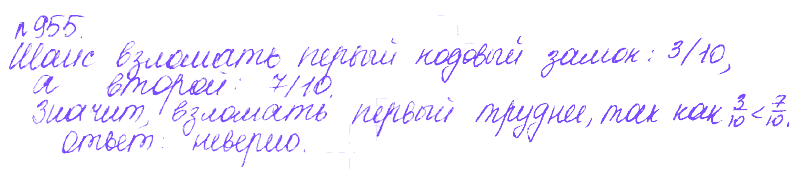 №955.
Шанс взломать перый кодовый замок: 3/10,
а второй: 7/10.
Значит, взломать первый труднее, так как 3/10 < 7/10.
Ответ: неверно.